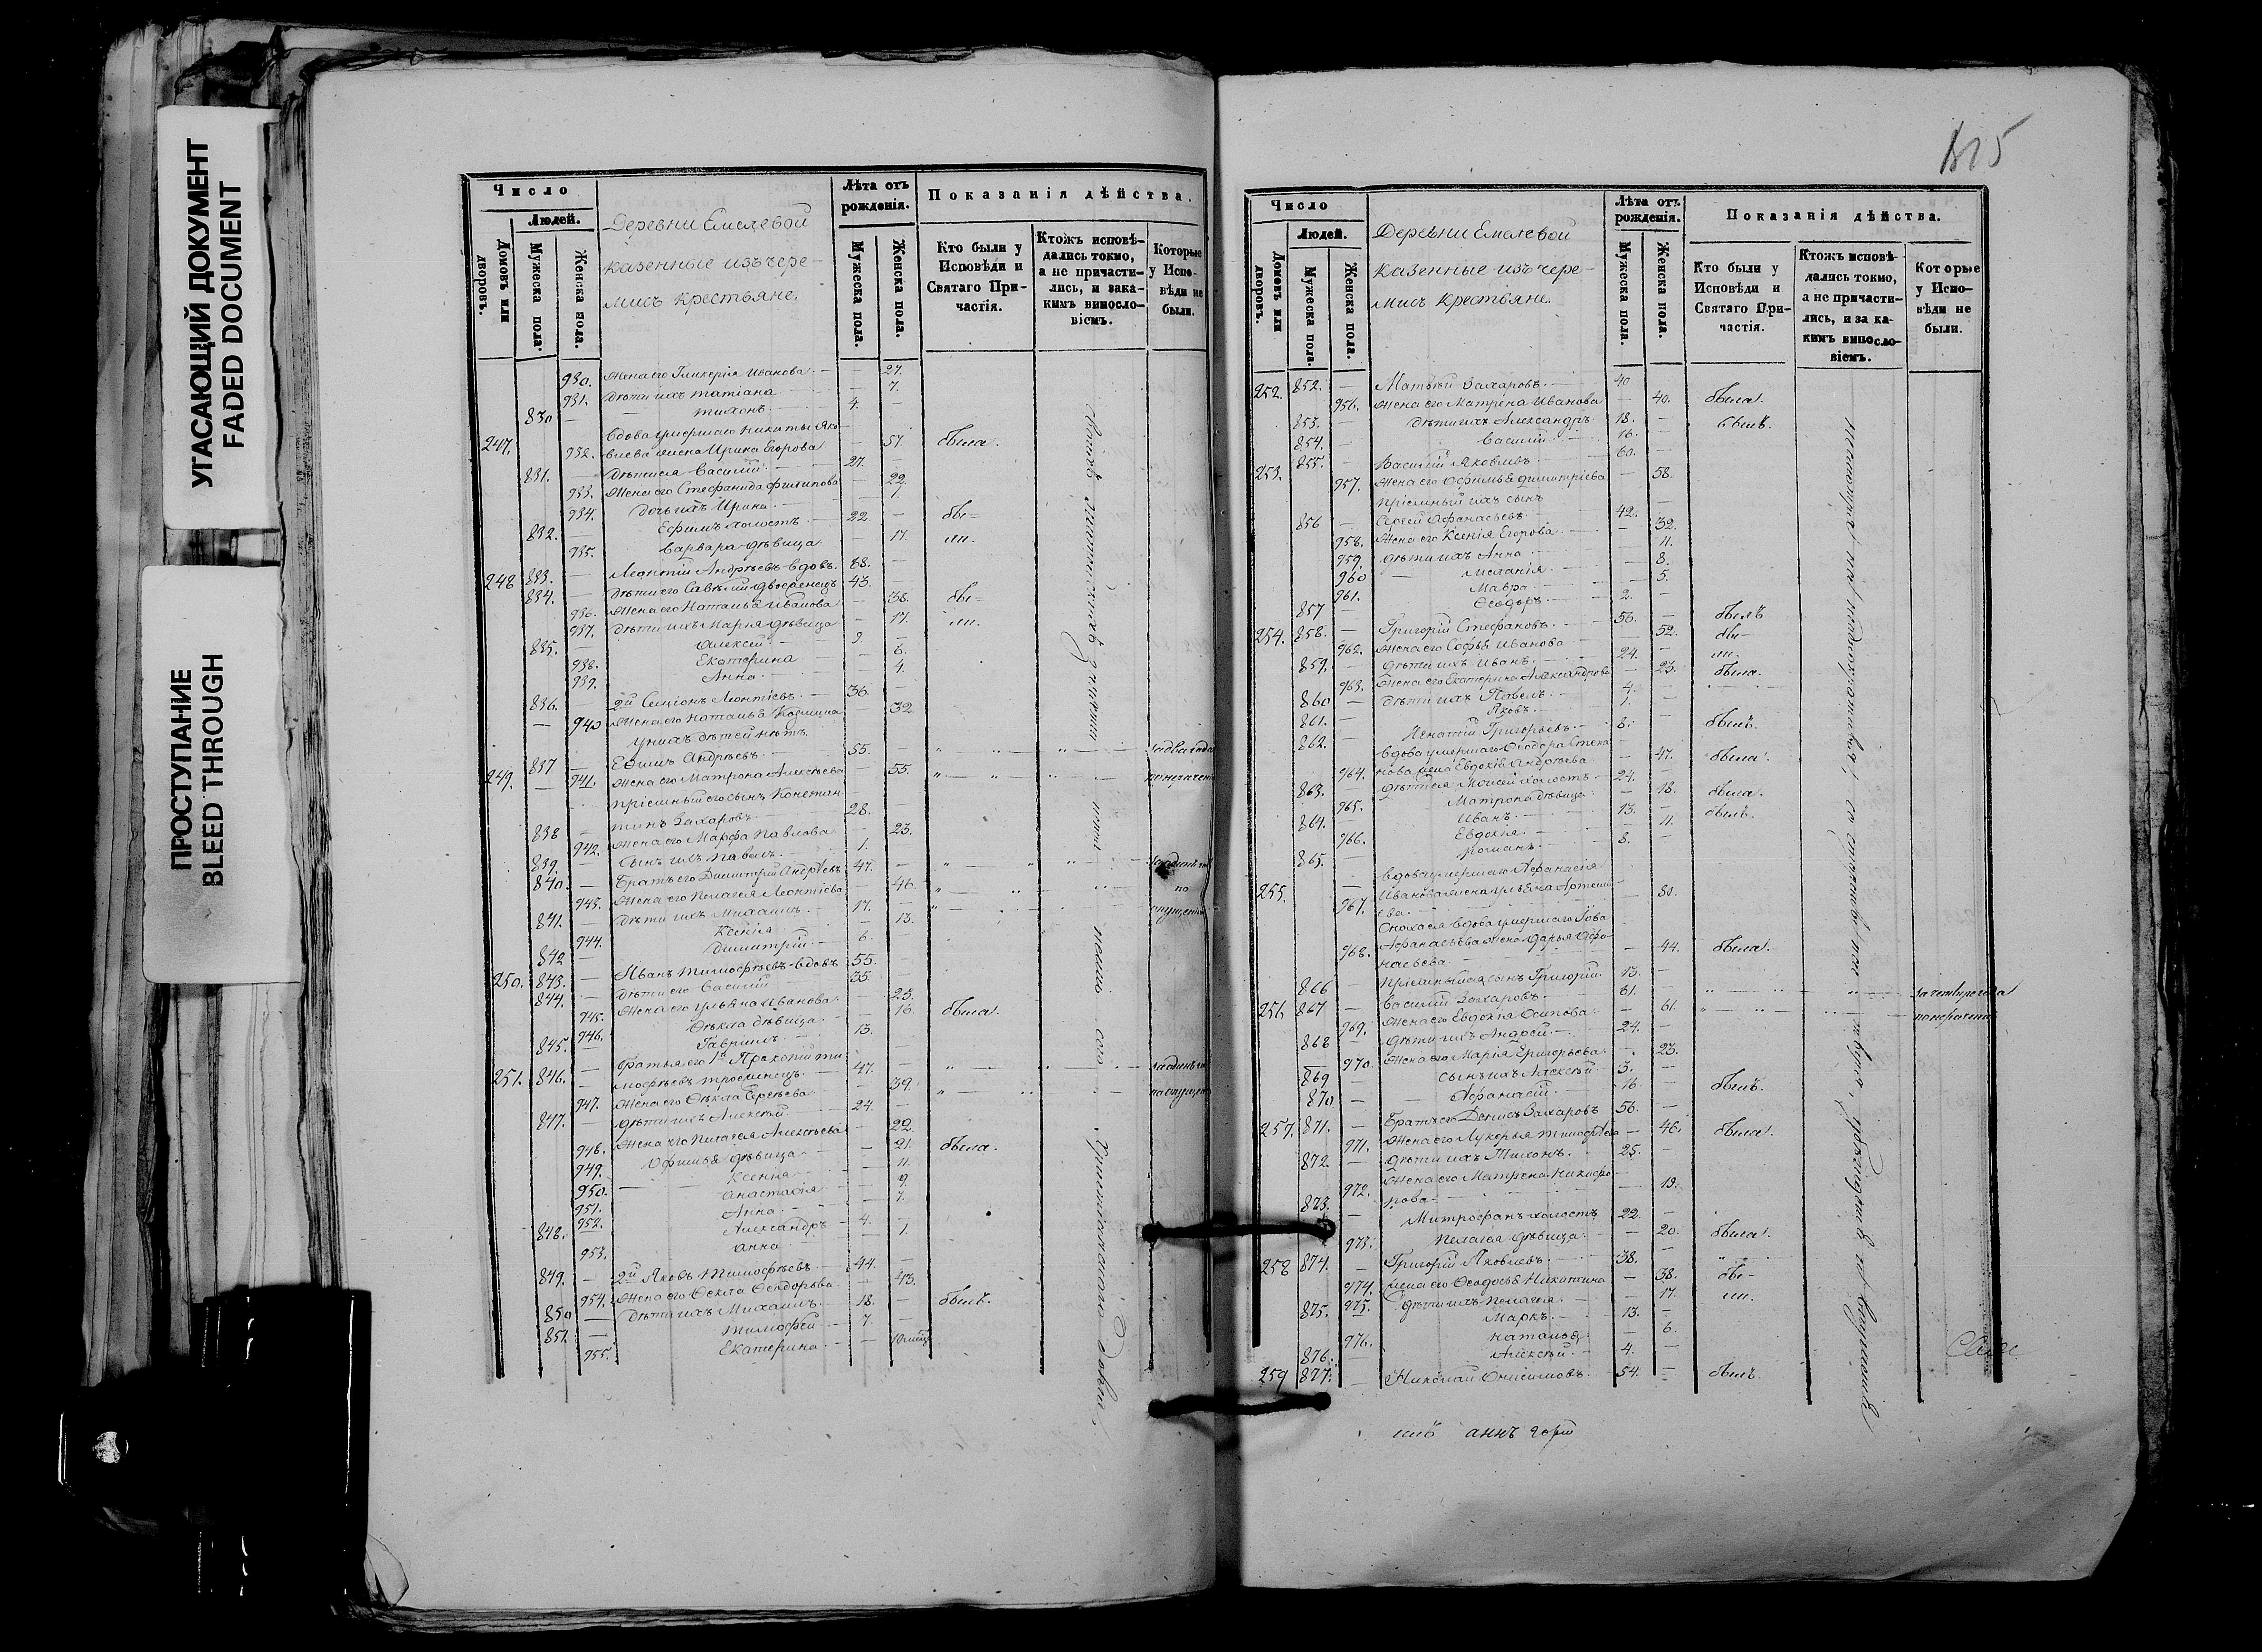 УГАСАЮЩИЙ ДОКУМЕНТ
FADED DOCUMENT
ПРОСТУПАНИЕ
BLEED THROUGH
Число
Людей.
Домовъ или дворовъ.
Мужеска пола.
Женска пола.
Деревни Емелевой
казенные изъ чере-
мисъ крестьяне.
Лѣта отъ рожденія.
Мужеска пола.
Женска пола.
Показанія дѣйства.
Кто были у Исповѣди и Святаго При-частія.
Ктожъ исповѣ-дались токмо, а не причасти-лись, и зака-кимъ винословіемъ.
Которые у Испо-вѣди не были.
930. Жена его Гликерія Иванова — 27.
931. Дѣти ихъ Татіана — 7.
830 — Тихонъ 4. —
Вдова умершаго Никиты Яко-
247. 932. влева жена Ирина Егорова — 57. была.
831. — Дѣти ея Василій 27. —
933. Жена его Стефанида Филипова — 22.
934. Дочь ихъ Ирина — 1.
832. — Ефимъ холостъ 22. — бы=
935. Варвара дѣвица — 17. ли.
248 833. — Леонтій Андреевъ вдовъ 68. —
834. — Дѣти его Савелій двоеженецъ 43. —
936. Жена его Наталья Иванова — 38. бы=
937. Дѣти ихъ Марія дѣвица — 17. ли.
835. — Алексей 9. —
938. Екатерина — 6.
939. Анна — 4.
836. — 2й Симіонъ Леонтіевъ 36. —
940 Жена его Наталья Козмина — 32
у нихъ дѣтей нѣтъ
249. 837 — Ефимъ Андреевъ 55. — за два года
941. Жена его Матрона Алексѣева — 55. по нераченію
Пріемный его сынъ Констан-
838 — тинъ Захаровъ 28. —
942. Жена его Марфа Павлова — 23.
839. — Сынъ ихъ Павелъ 1. —
840. — Братъ его Димитрій Андреевъ 47. —
943. Жена его Пелагея Леонтіева — 46. по
841. — Дѣти ихъ Михаилъ 17. — опущенію
944. Ксенія — 13.
842 — Димитрій 6. —
250. 843. — Иванъ Тимофѣевъ вдовъ 55. —
844. — Дѣти его Василій 35. —
945. Жена его Ульяна Иванова — 25.
946. Ѳекла дѣвица — 16. была.
845. — Гавріилъ 13. —
Братья его 1й Прокопій Ти-
251. 846. — мофѣевъ троеженецъ 47. —
947. Жена его Ѳекла Сергѣева — 39.
847. — Дѣти ихъ Алексѣй 24. —
948. Жена его Пелагея Алексѣева — 22.
949. Офимья дѣвица — 21. была.
950. Ксенія — 11.
951. Анастасія — 9.
952. Анна — 7.
848. — Александръ 4. —
953. Анна — 1.
849. — 2й Яковъ Тимофѣевъ 44. —
954. Жена его Ѳекла Ѳеодорова — 43.
850 — Дѣти ихъ Михаилъ 18. — былъ.
851. — Тимофей 7. —
955. Екатерина —
Число
Людей.
Домовъ или дворовъ.
Мужеска пола.
Женска пола.
Деревни Емелевой
казенные изъ чере-
мисъ крестьяне.
Лѣта отъ рожденія.
Мужеска пола.
Женска пола.
Показанія дѣйства.
Кто были у Исповѣди и Святаго При-частія.
Ктожъ исповѣ-дались токмо, а не причасти-лись, и за ка-кимъ винословіемъ.
Которые у Испо-вѣди не были.
252. 852. — Матвѣй Захаровъ 40 —
956. Жена его Матрена Иванова — 40. была.
853. — Дѣти ихъ Александръ 18. — былъ.
854. — Василій 16. —
253. 855. — Василій Яковлевъ 60. —
957. Жена его Офимья Димитріева — 58.
Пріемный ихъ сынъ
856 — Сергей Афанасьевъ 42. —
958. Жена его Ксенія Егорова — 32.
959. Дѣти ихъ Анна — 11.
960 Меланія — 8.
961. Мавра — 5.
857 — Ѳеодоръ 2. —
254. 858. — Григорій Стефановъ 56. — былъ
962. Жена его Софья Иванова — 52. бы-
859. — Дѣти ихъ Иванъ 24. — ли.
963. Жена его Екатерина Александрова — 23. была.
860 — Дѣти ихъ Павелъ 4. —
861. — Яковъ 1. —
862. — Игнатій Григорьевъ 8. — былъ.
Вдова умершаго Ѳеодора Степа-
964. нова жена Евдокія Андреева — 47. была.
863. — Дѣти ея Моисей холостъ 24. —
965. Матрона дѣвица — 18. была.
864. — Иванъ 13. — былъ.
966. Евдокія — 11.
865. — Романъ 8. —
Вдова умершаго Афанасія
255. Иванова жена Ульяна Артемі-
967. ева — 80.
Сноха ея вдова умершаго Іова
968. Афанасьева жена Дарья Афа- — 44. была.
насьева
866 — Пріемный ея сынъ Григорій 13. —
256. 867 — Василій Захаровъ 61. — за четыре года
969. Жена его Евдокія Осипова — 61. по нераченію
868 — Дѣти ихъ Андрей 24. —
970. Жена его Марія Григорьева — 23.
869 — Сынъ ихъ Алексѣй 3. —
870 — Афанасій 16. — былъ.
257. 871. — Братъ его Денисъ Захаровъ 56. —
971. Жена его Лукерья Тимофѣева — 46. была.
872. — Дѣти ихъ Тихонъ 25. —
972. Жена его Матрена Никифо-
рова — 19.
873. — Митрофанъ холостъ 22. —
973. Пелагея дѣвица — 20. была.
258 874. — Григорій Яковлевъ 38. —
974. Жена его Ѳеодосья Никитина — 38. бы-
975. Дѣти ихъ Пелагея — 17. ли.
875. — Маркъ 13. —
976. Наталья — 6.
876. — Алексѣй 4. —
259 877. — Николай Онисимовъ 54. — былъ.